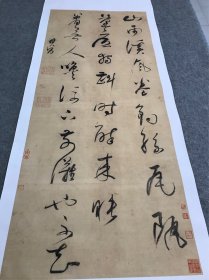 山雨溪風卷釣絲瓦甌
篷底獨斟時醉來睡
著無人喚流下前灘也不知